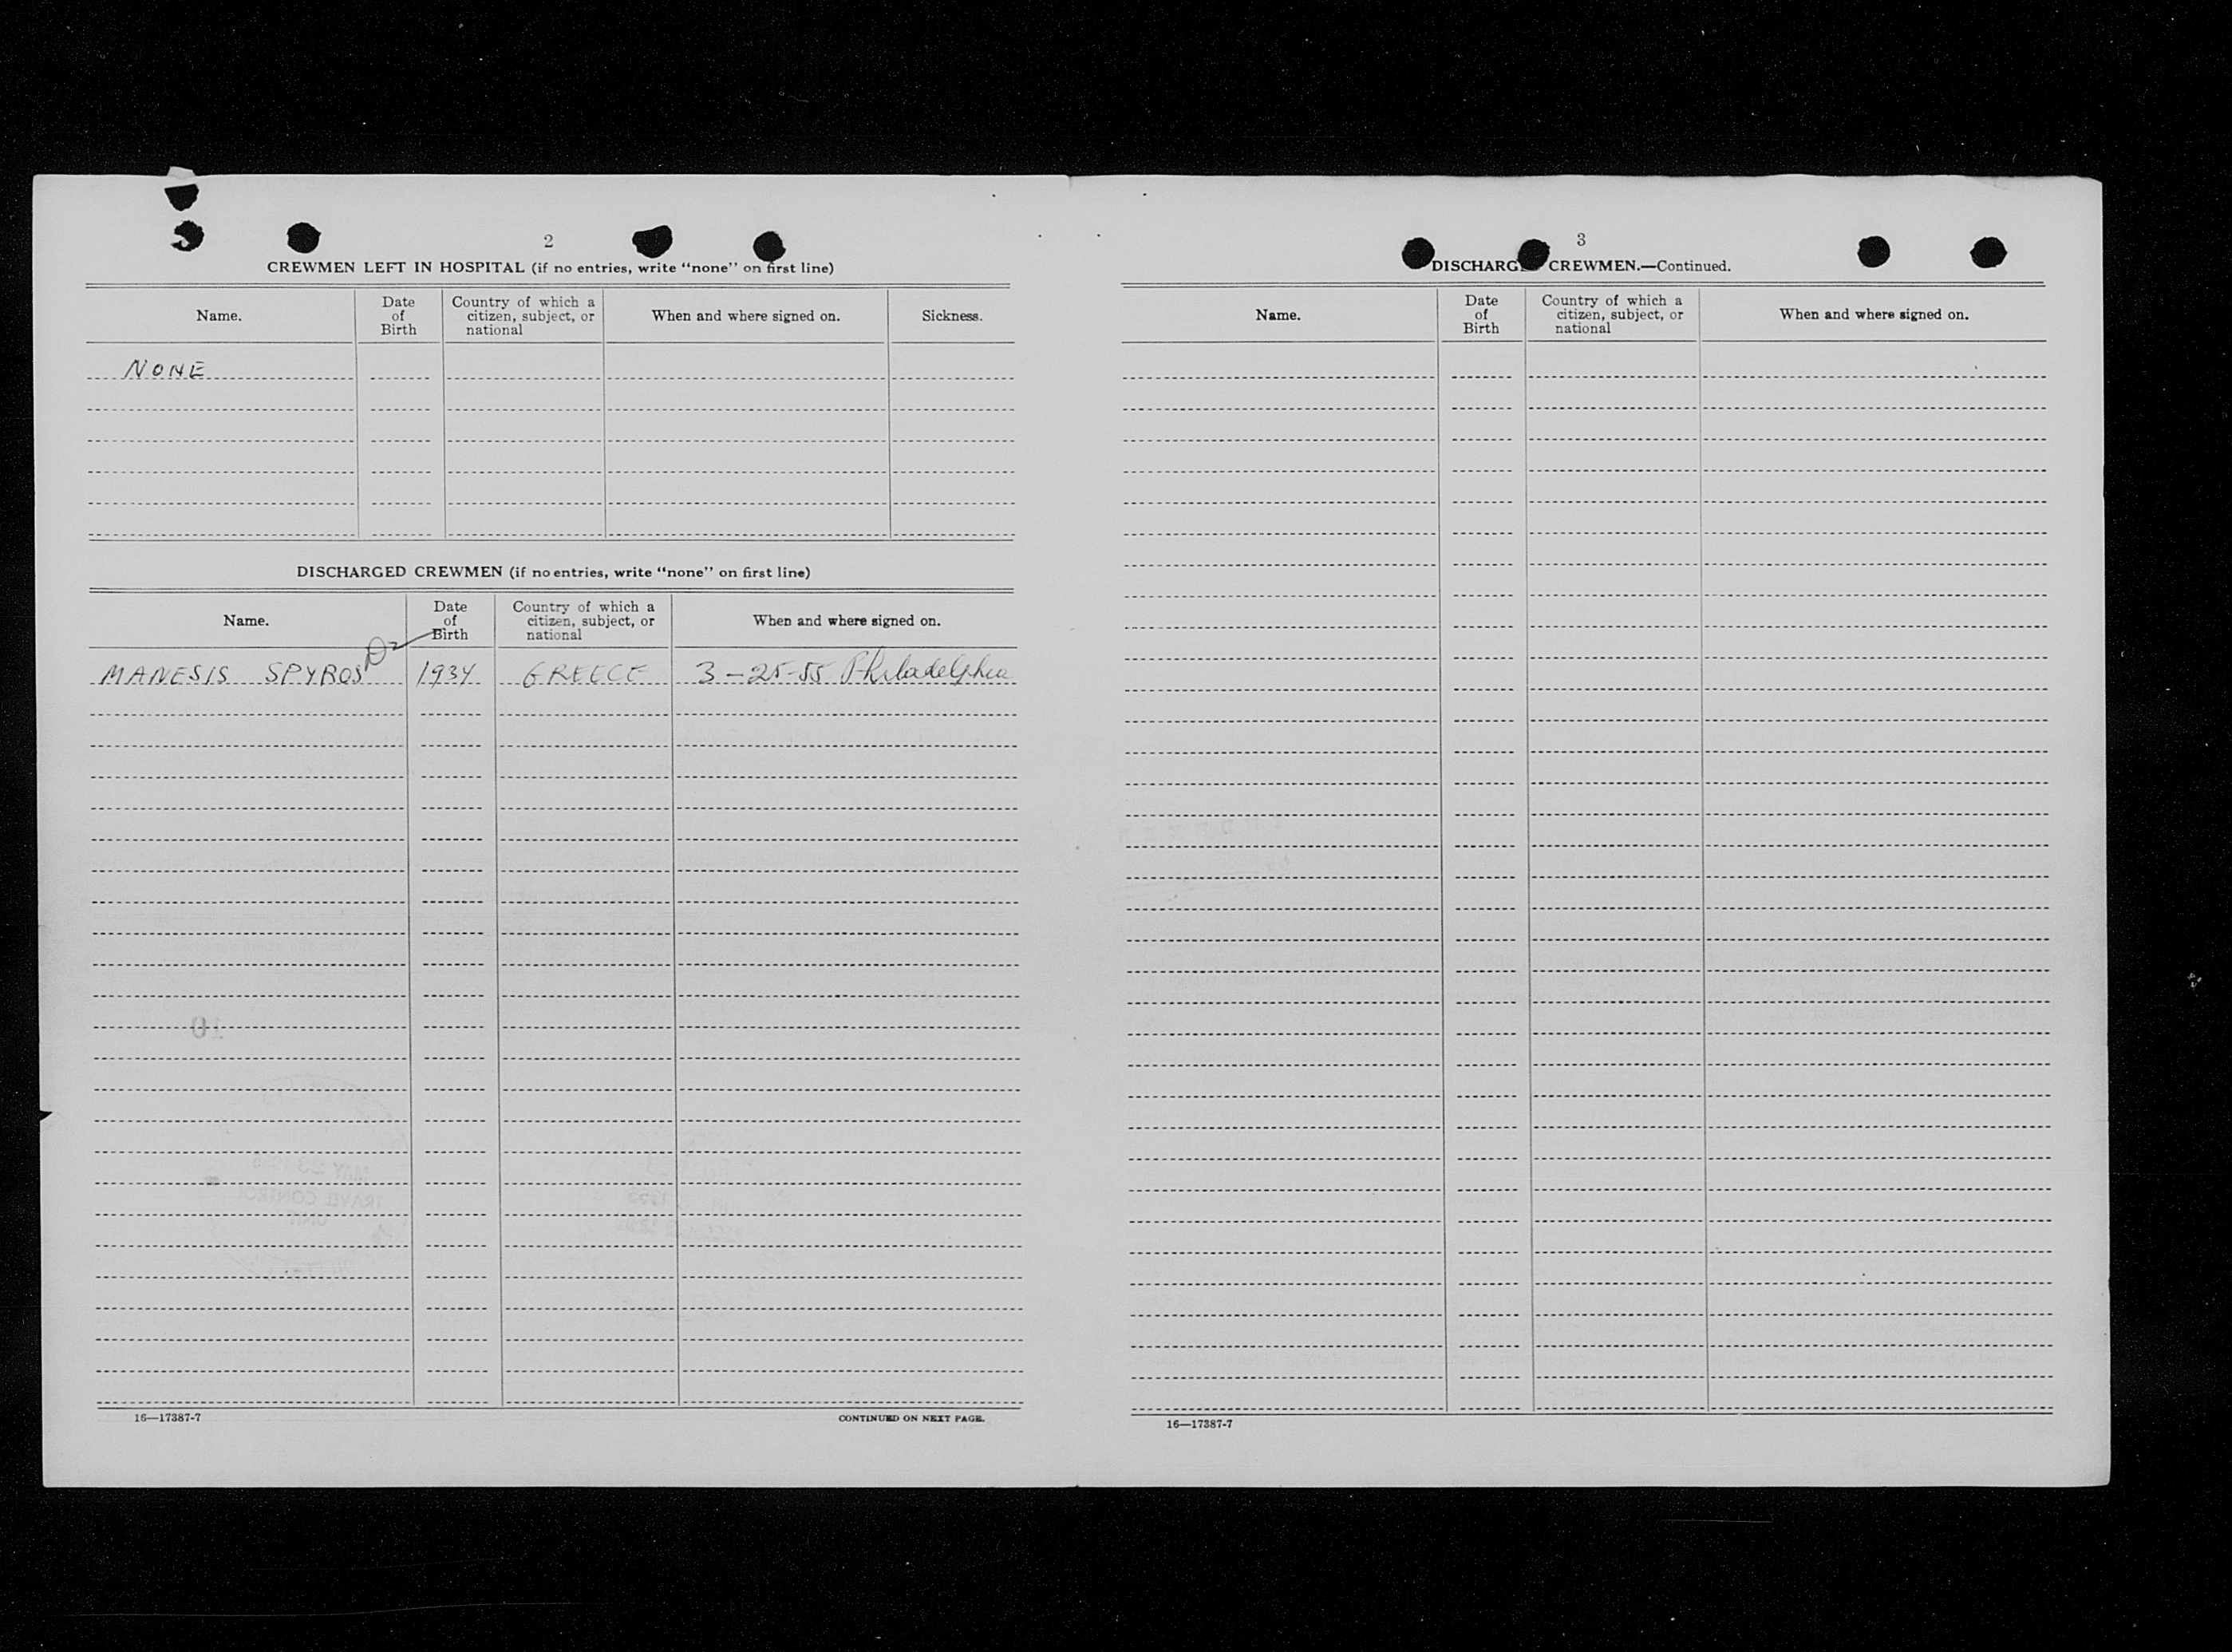 2
CREWMEN LEFT IN HOSPITAL (if no entries, write “none” on first line)
Name.
Date of Birth
Country of which a citizen, subject, or national
When and where signed on.
Sickness.
NONE
DISCHARGED CREWMEN (if no entries, write “none” on first line)
Name.
Date of Birth
Country of which a citizen, subject, or national
When and where signed on.
MANESIS SPYROS 1934 GREECE 3-25-55 Philadelphia
16—17387-7
CONTINUED ON NEXT PAGE.
3
DISCHARG CREWMEN.—Continued.
Name.
Date of Birth
Country of which a citizen, subject, or national
When and where signed on.
16—17387-7